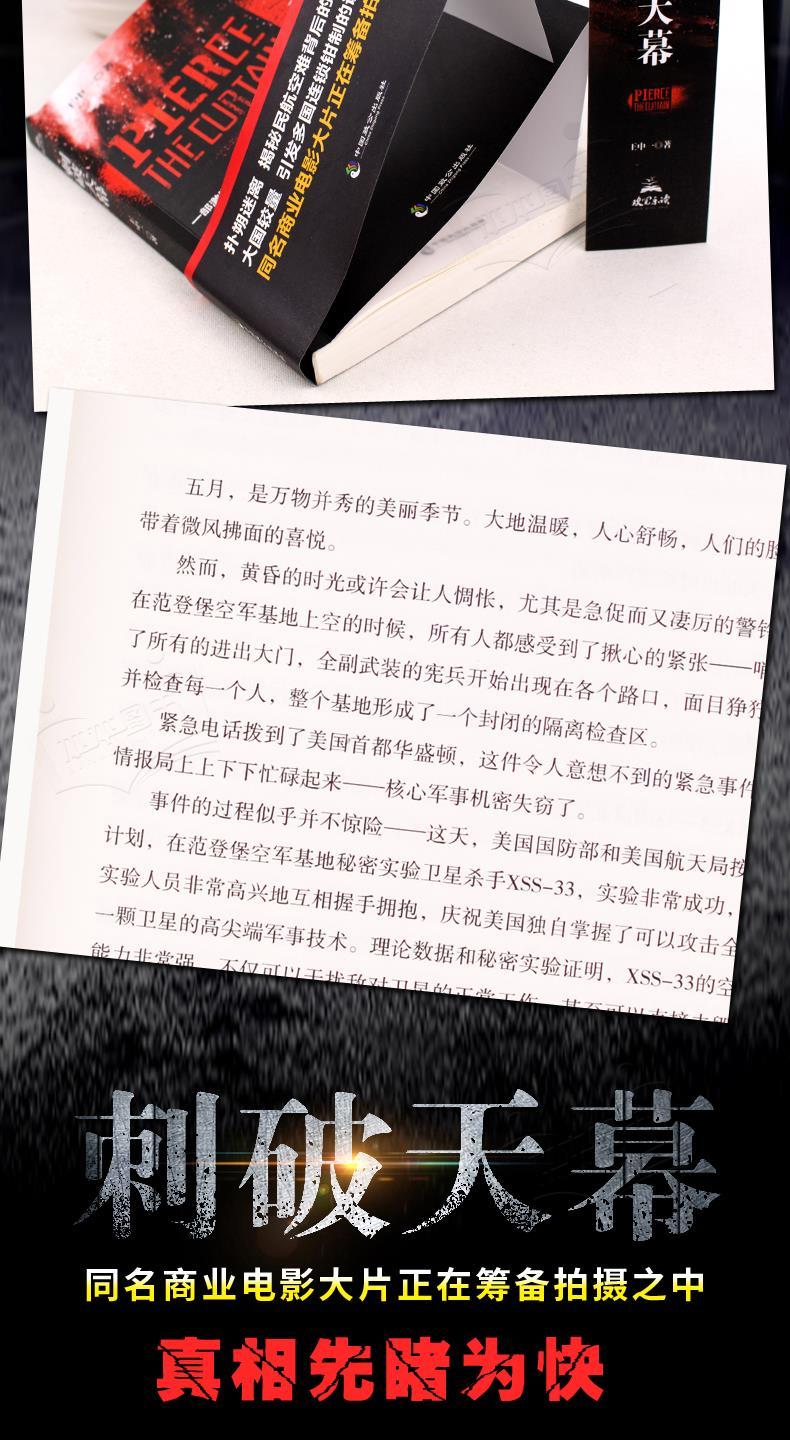 PIERCE
THE CURTAIN
扑朔迷离 揭秘民航空难背后的
大国较量 引发多国连锁钳制的
同名商业电影大片正在筹备拍
中国致公出版社
中国致公出版社
天幕
PIERCE
THE CURTAIN
王中一◎著
五月，是万物并秀的美丽季节。大地温暖，人心舒畅，人们的脸
带着微风拂面的喜悦。
然而，黄昏的时光或许会让人惆怅，尤其是急促而又凄厉的警铃
在范登堡空军基地上空的时候，所有人都感受到了揪心的紧张——哨
了所有的进出大门，全副武装的宪兵开始出现在各个路口，面目狰狞
并检查每一个人，整个基地形成了一个封闭的隔离检查区。
紧急电话拨到了美国首都华盛顿，这件令人意想不到的紧急事件
情报局上上下下忙碌起来——核心军事机密失窃了。
事件的过程似乎并不惊险——这天，美国国防部和美国航天局按
计划，在范登堡空军基地秘密实验卫星杀手XSS-33，实验非常成功，
实验人员非常高兴地互相握手拥抱，庆祝美国独自掌握了可以攻击全
一颗卫星的高尖端军事技术。理论数据和秘密实验证明，XSS-33的空
能力非常强，不仅可以干扰敌对卫星的正常工作，甚至可以直接击毁
刺破天幕
同名商业电影大片正在筹备拍摄之中
真相先睹为快